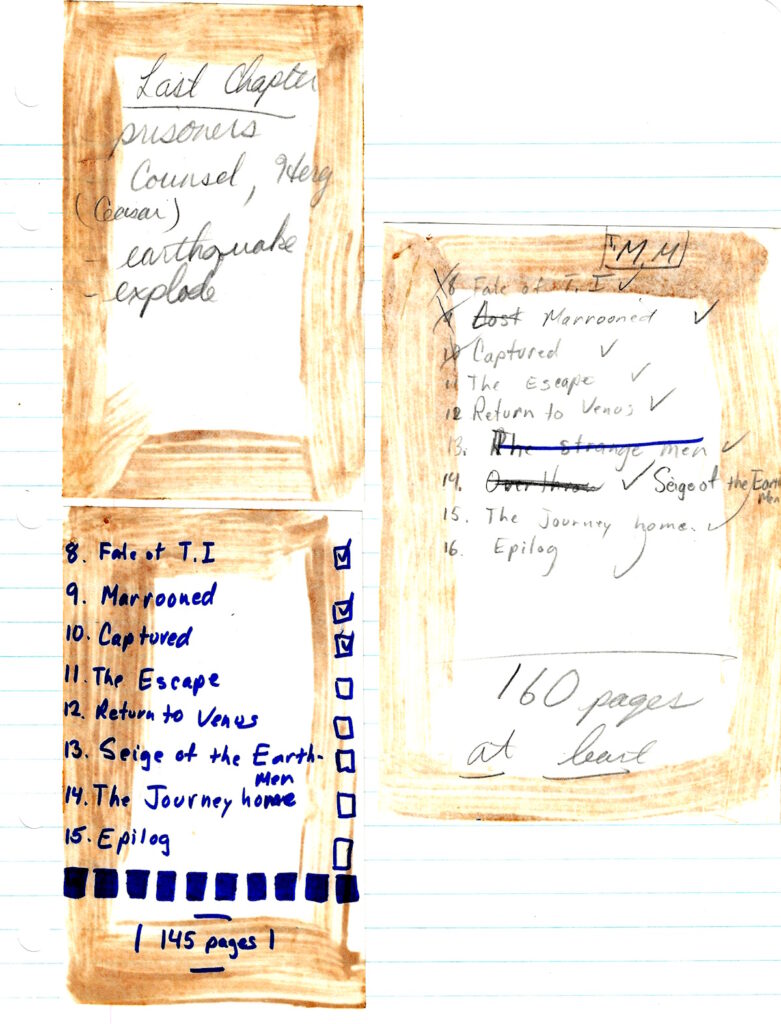 Last Chapter
prisoners
- Counsel, Herg
(Ceasar)
- earthquake
- explode
T.M.M
8 Fale of T.I ✓
9 Lost Marrooned ✓
10 Captured ✓
11 The Escape ✓
12 Return to Venus ✓
13. The strange men ✓
14. Overthrow ✓ Seige of the Earth
Men
15. The Journey home. ✓
16. Epilog
160 pages
at least
8. Fale of T.I
9. Marrooned
10. Captured
11. The Escape
12. Return to Venus
13. Seige of the Earth-
Men
14. The Journey home
15. Epilog
145 pages